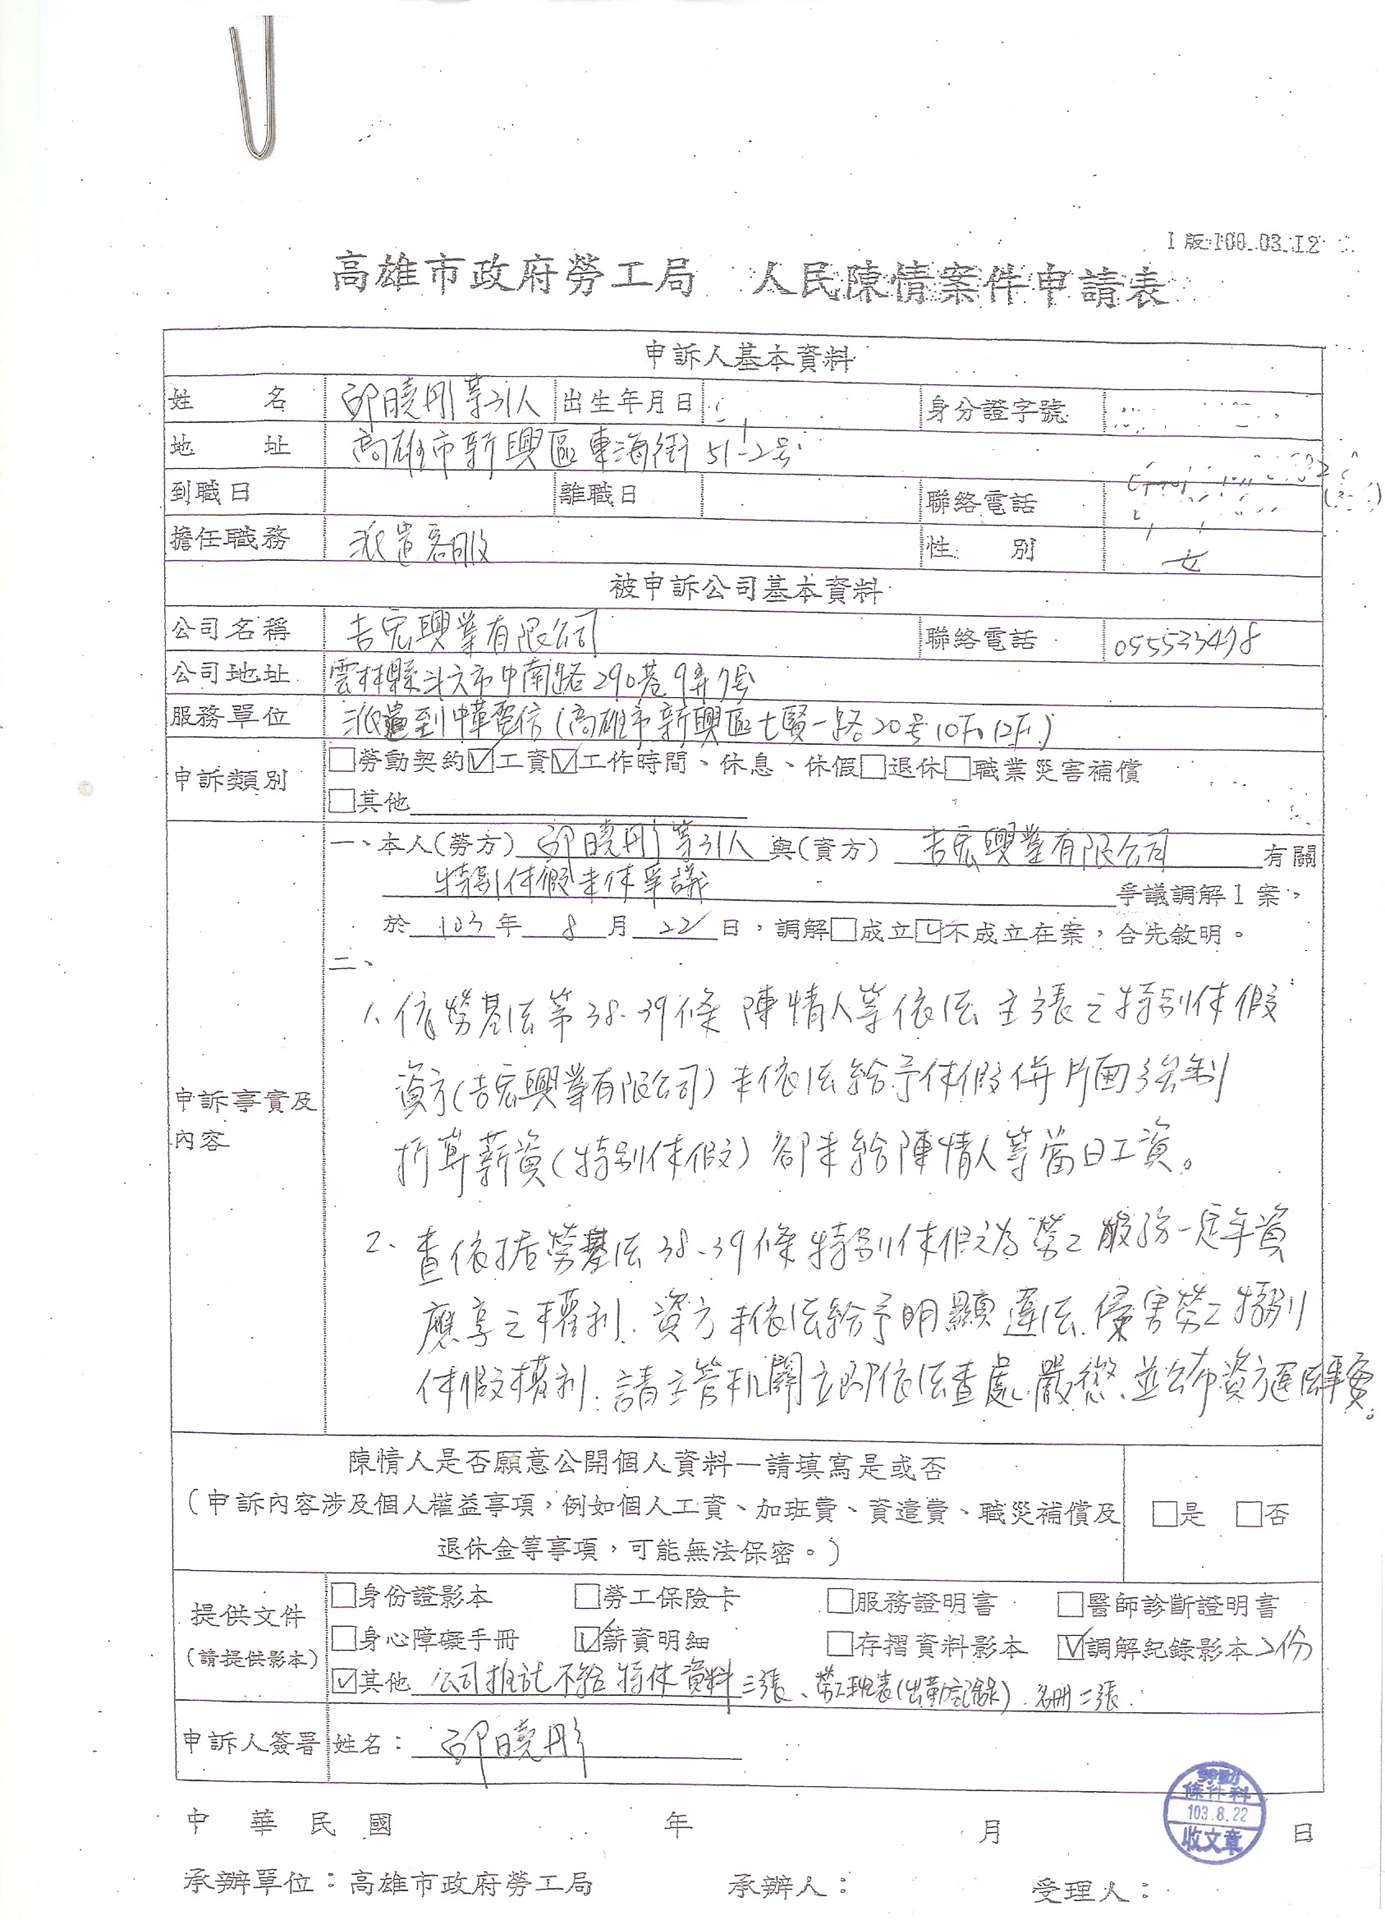 1版:100.03.12
高雄市政府勞工局　人民陳情案件申請表
申訴人基本資料
姓　名 邱曉彤等31人 出生年月日 身分證字號
地　址 高雄市新興區東海街51-2号
到職日 離職日 聯絡電話
擔任職務 派遣客服 性　別 女
被申訴公司基本資料
公司名稱 吉宏興業有限公司 聯絡電話 055533498
公司地址 雲林縣斗六市中南路290巷9弄7号
服務單位 派遣到中華電信(高雄市新興區七賢一路20号10F.12F.)
申訴類別 □勞動契約☑工資☑工作時間、休息、休假□退休□職業災害補償
□其他
一、本人(勞方) 邱曉彤等31人 與(資方) 吉宏興業有限公司 有關
特別休假未休爭議 爭議調解1案，
於103年8月22日，調解□成立☑不成立在案，合先敘明。
申訴事實及內容
二、
1、依勞基法第38-39條 陳情人等依法主張之特別休假
資方(吉宏興業有限公司)未依法給予休假併片面強制
折算薪資(特別休假)卻未給陳情人等當日工資。
2、查依據勞基法38-39條特別休假為勞工服務一定年資
應享之權利.資方未依法給予明顯違法.侵害勞工特別
休假權利.請主管机關立即依法查處.嚴懲.並公布資方違法事實。
陳情人是否願意公開個人資料—請填寫是或否
(申訴內容涉及個人權益事項，例如個人工資、加班費、資遣費、職災補償及 □是　□否
退休金等事項，可能無法保密。)
提供文件
(請提供影本)
□身份證影本　□勞工保險卡　□服務證明書　□醫師診斷證明書
□身心障礙手冊　☑薪資明細　□存摺資料影本　☑調解紀錄影本2份
☑其他 公司推託不給特休資料三張、勞工班表(出勤記錄).名冊二張.
申訴人簽署 姓名：邱曉彤
勞動
條件科
103.8.22
收文章
中　華　民　國　年　月　日
承辦單位：高雄市政府勞工局　承辦人：　受理人：